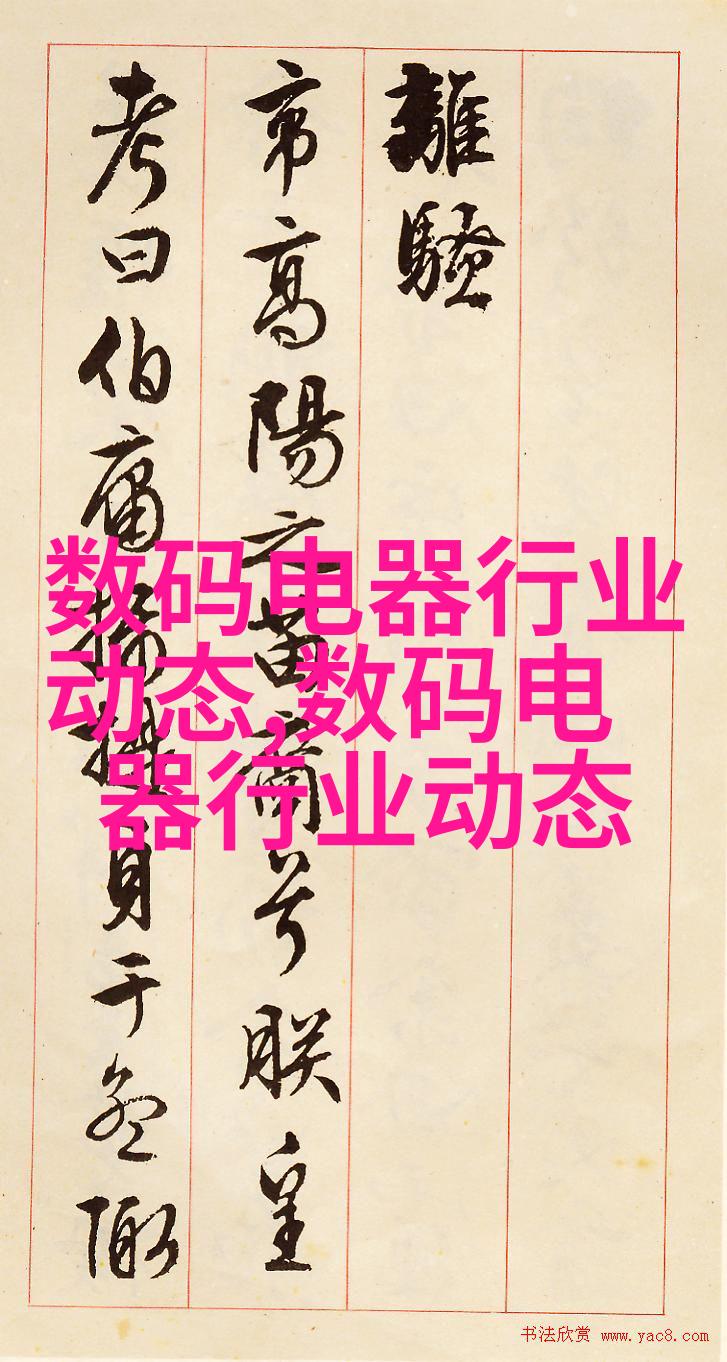 離騷
帝高陽之苗裔兮朕皇
考曰伯庸攝提貞于孟陬
数码电器行业
动态,数码电
器行业动态
书法欣赏 www.yac8.com